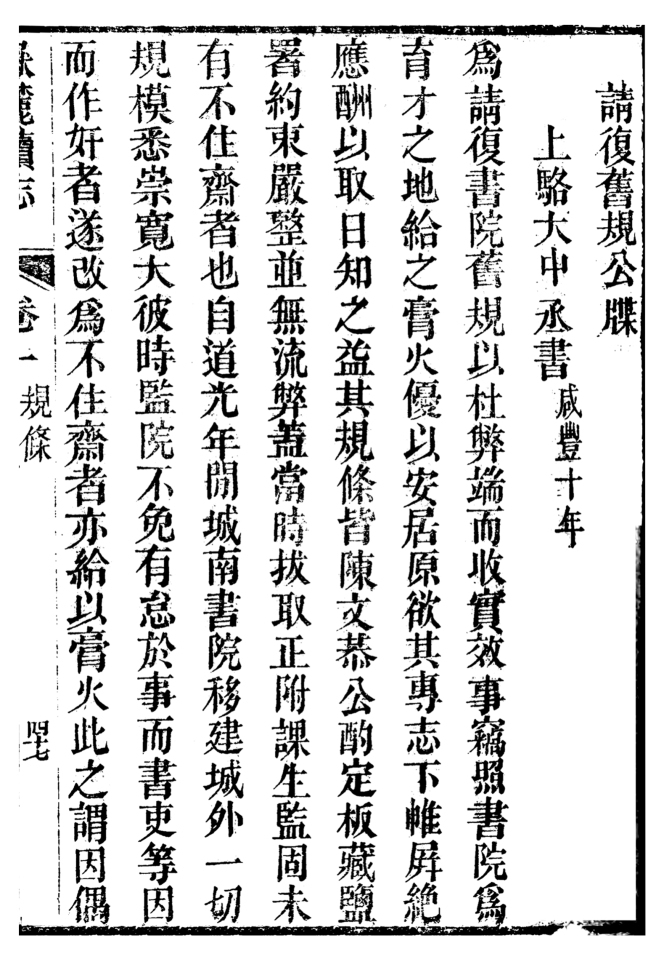 請復舊規公牒
上駱大中丞書咸豐十年
爲請復書院舊規以杜弊端而收實效事竊照書院爲
育才之地給之膏火優以安居原欲其專志下帷屛絶
應酬以取日知之益其規條皆陳文恭公酌定板藏鹽
署約束嚴整並無流弊蓋當時拔取正附課生監固未
有不住齋者也自道光年閒城南書院移建城外一切
規模悉崇寬大彼時監院不免有怠於事而書吏等因
而作奸者遂改爲不住齋者亦給以膏火此之謂因偶
麓續志 卷一 規條 四七